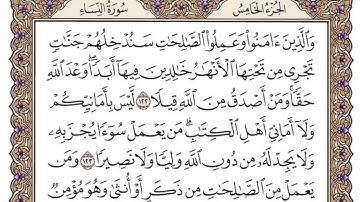 الجزء الخامس سورة النساء
وَالَّذِينَ ءَامَنُوا۟ وَعَمِلُوا۟ الصَّٰلِحَٰتِ سَنُدْخِلُهُمْ جَنَّٰتٍ
تَجْرِى مِن تَحْتِهَا الْأَنْهَٰرُ خَٰلِدِينَ فِيهَآ أَبَدًا ۖ وَعْدَ اللَّهِ
حَقًّا ۚ وَمَنْ أَصْدَقُ مِنَ اللَّهِ قِيلًا ١٢٢ لَّيْسَ بِأَمَانِيِّكُمْ
وَلَآ أَمَانِىِّ أَهْلِ الْكِتَٰبِ ۗ مَن يَعْمَلْ سُوٓءًا يُجْزَ بِهِۦ
وَلَا يَجِدْ لَهُۥ مِن دُونِ اللَّهِ وَلِيًّا وَلَا نَصِيرًا ١٢٣ وَمَن
يَعْمَلْ مِنَ الصَّٰلِحَٰتِ مِن ذَكَرٍ أَوْ أُنثَىٰ وَهُوَ مُؤْمِنٌ